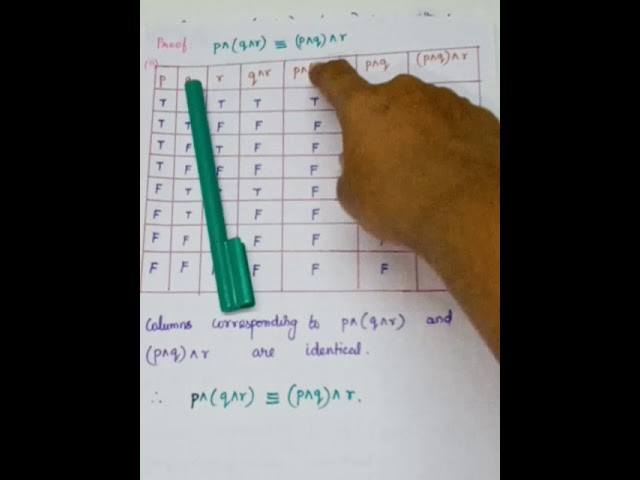 Proof p∧(q∧r) ≡ (p∧q)∧r
p r q∧r p∧q (p∧q)∧r
T T T T
T T F F F
T F T F F
T F F F F
F T T F
F T F F
F F F F
F F F F F
Columns corresponding to p∧(q∧r) and
(p∧q)∧r are identical.
∴ p∧(q∧r) ≡ (p∧q)∧r.